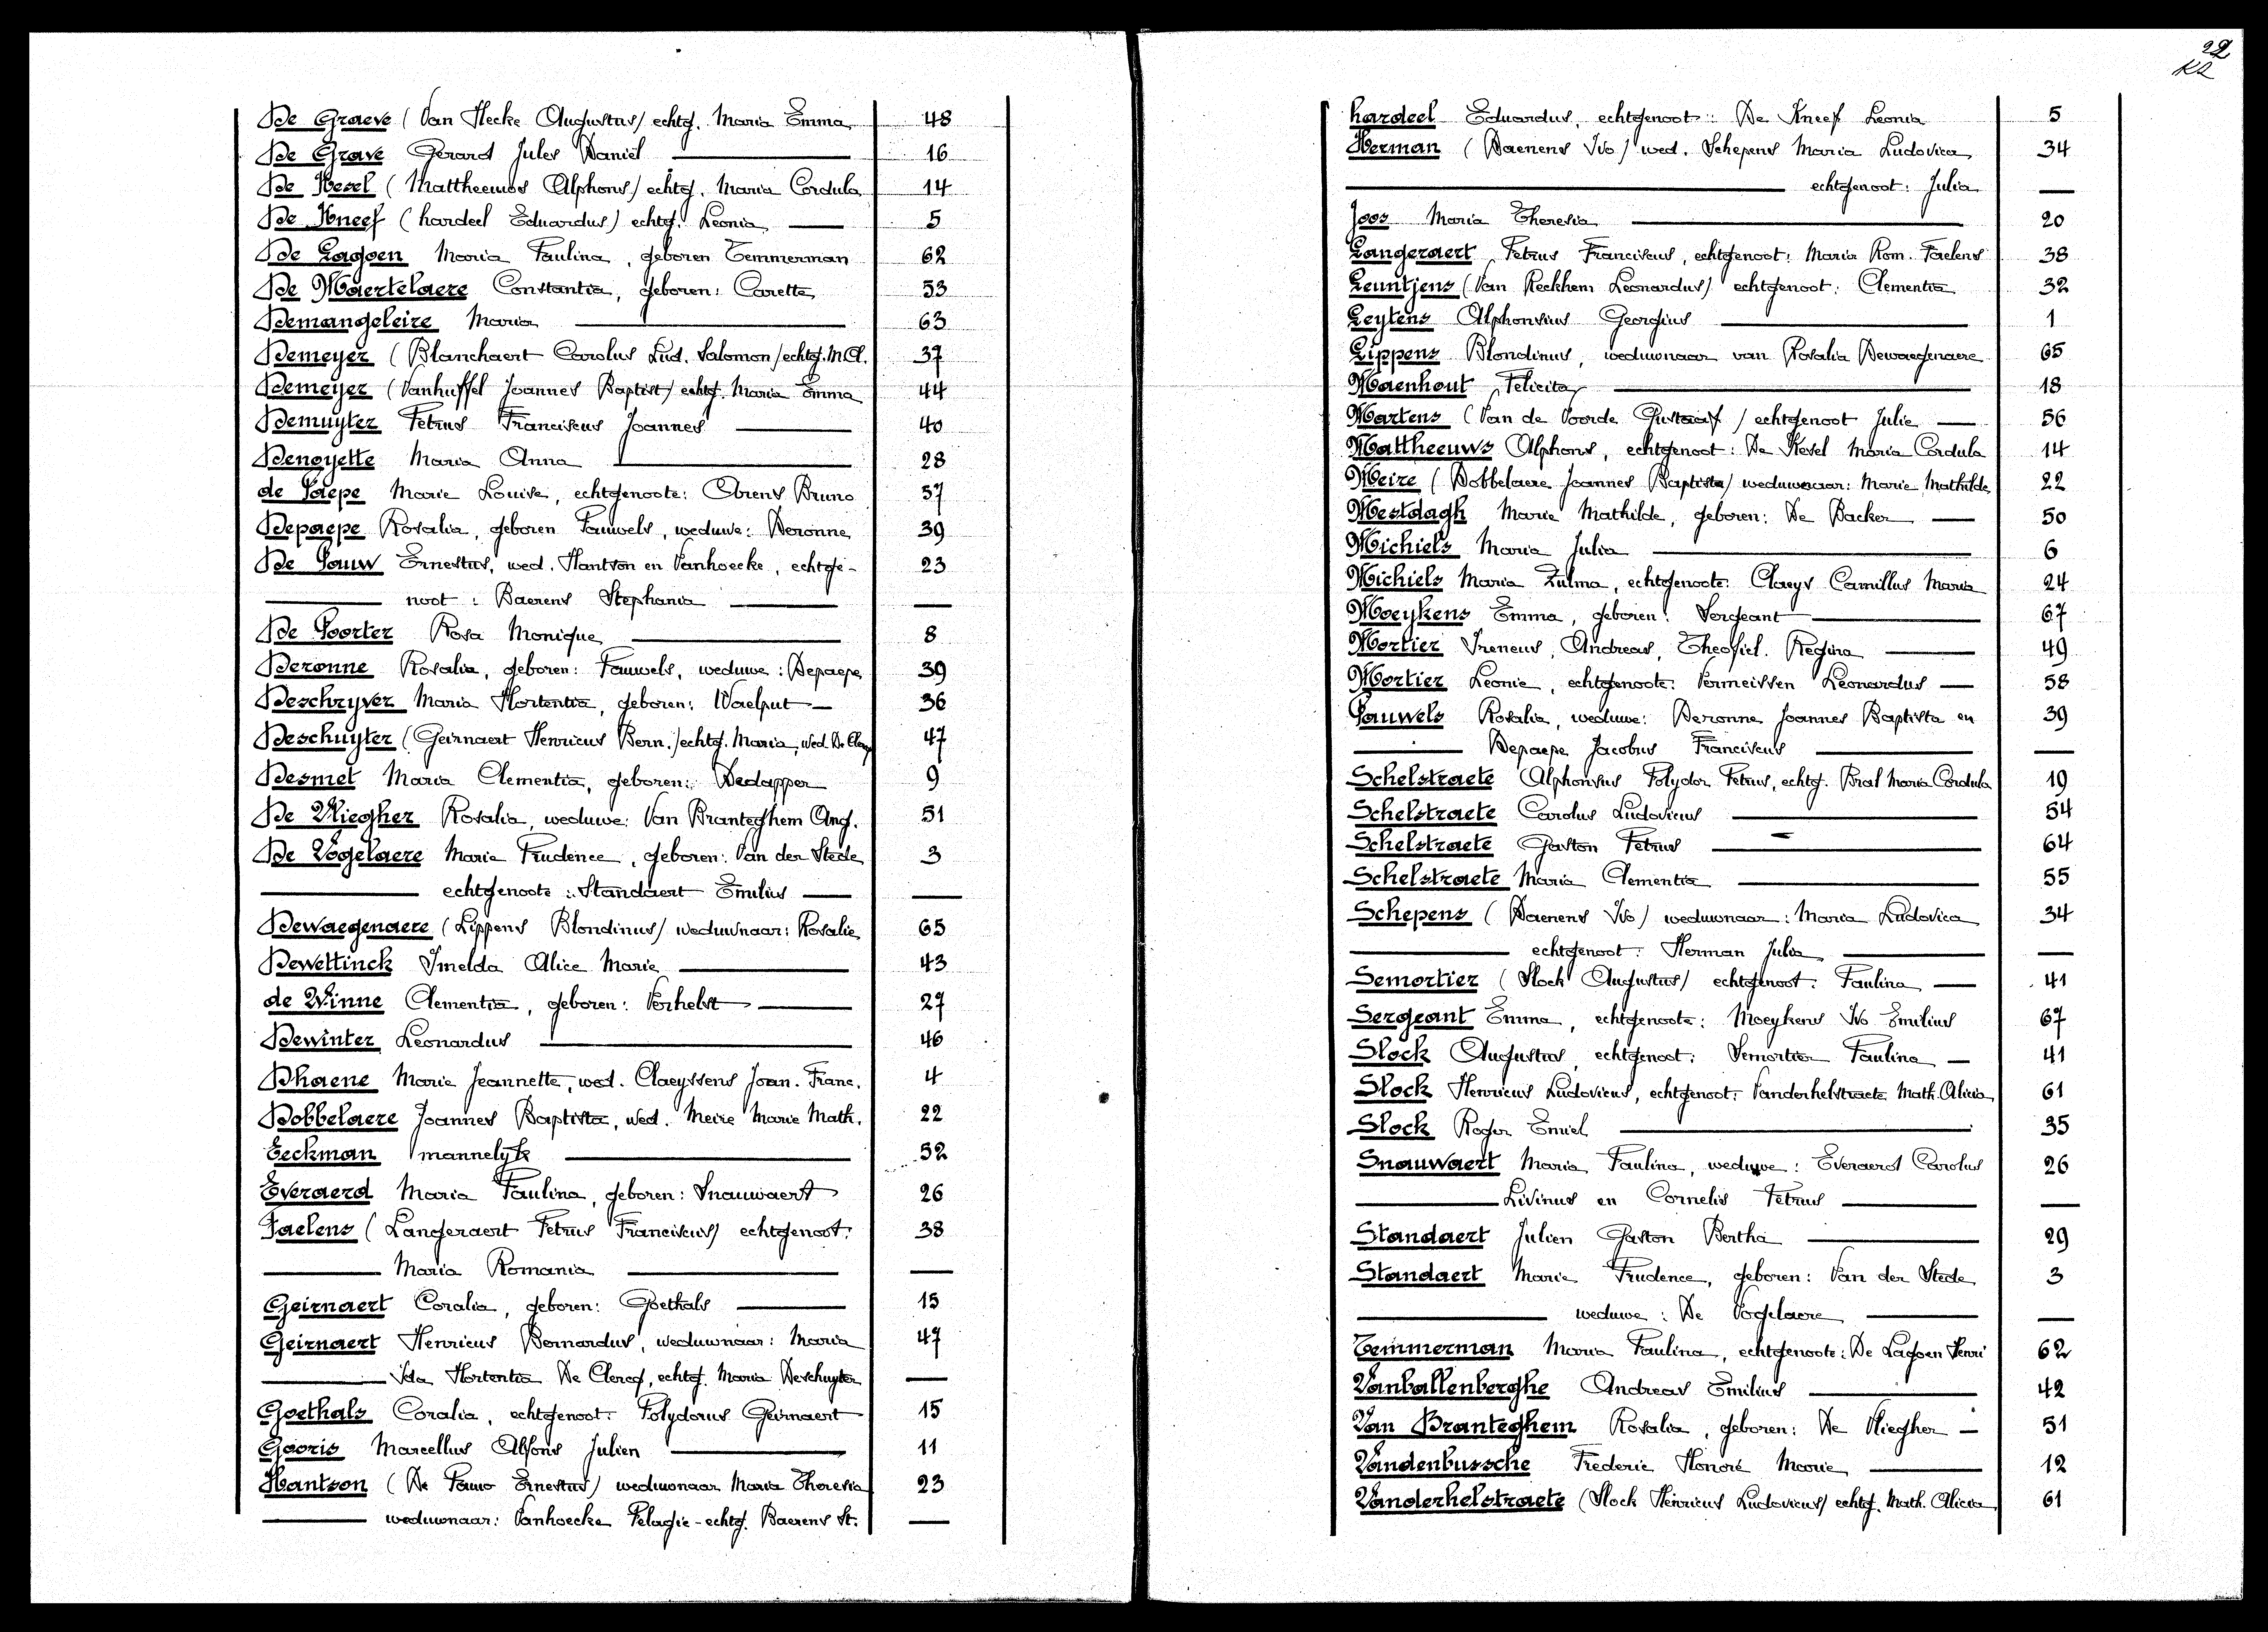 De Graeve (Van Hecke Augustus) echtg. Maria Emma 48
De Grave Gerard Jules Daniël 16
De Kesel (Mattheeuws Alphons) echtg. Maria Cordula 14
De Kneef (hardeel Eduardus) echtg. Leonia 5
De Lagoen Maria Paulina, geboren Temmerman 62
De Maertelaere Constantia, geboren: Carette 53
Demangeleire Maria 63
Demeyer (Blanchaert Carolus Lud. Salomon) echtg. M. Cl. 37
Demeyer (Vanhuffel Joannes Baptist) echtg. Maria Emma 44
Demuyter Petrus Franciscus Joannes 40
Denoyette Maria Anna 28
de Paepe Marie Louise, echtgenoote: Arens Bruno 57
Depaepe Rosalia, geboren Pauwels, weduwe: Deronne 39
De Pauw Ernestus, wed. Hantson en Vanhoecke, echtge- 23
noot: Baerens Stephania —
De Poorter Rosa Monique 8
Deronne Rosalia, geboren: Pauwels, weduwe: Depaepe 39
Deschryver Maria Hortentia, geboren: Waelput 36
Deschuyter (Geirnaert Henricus Bern.) echtg. Maria, wed. De Clercq 47
Desmet Maria Clementia, geboren: Dedapper 9
De Vliegher Rosalia, weduwe: Van Branteghem Ang. 51
De Vogelaere Maria Prudence, geboren: Van der Stede 3
echtgenoote: Standaert Emilius —
Dewaegenaere (Lippens Blondinus) weduwnaar: Rosalie 65
Dewettinck Imelda Alice Marie 43
de Winne Clementia, geboren: Verhelst 27
Dewinter Leonardus 46
Dhaene Marie Jeannette, wed. Claeyssens Joan. Franc. 4
Dobbelaere Joannes Baptista, wed. Meire Marie Math. 22
Eeckman mannelyk 52
Everaerd Maria Paulina, geboren: Snauwaert 26
Faelens (Langeraert Petrus Franciscus) echtgenoot: 38
Maria Romania —
Geirnaert Coralia, geboren: Goethals 15
Geirnaert Henricus Bernardus, weduwnaar: Maria 47
Ida Hortentia De Clercq, echtg. Maria Deschuyter —
Goethals Coralia, echtgenoot: Polydorus Geirnaert 15
Gooris Marcellus Alfons Julien 11
Hantson (De Pauw Ernestus) weduwnaar Maria Theresia 23
weduwnaar: Vanhoecke Pelagie - echtg. Baerens St. —
22
hardeel Eduardus, echtgenoot: De Kneef Leonia 5
Herman (Daenens Ivo) wed. Schepens Maria Ludovica 34
echtgenoot: Julia —
Joos Maria Theresia 20
Langeraert Petrus Franciscus, echtgenoot: Maria Rom. Faelens 38
Leuntjens (Van Reckhem Leonardus) echtgenoot: Clementia 32
Leytens Alphonsius Georgius 1
Lippens Blondinus, weduwnaar van Rosalia Dewaegenaere 65
Maenhout Felicita 18
Martens (Van de Voorde Gustaaf) echtgenoot Julie 56
Mattheeuws Alphons, echtgenoot: De Kesel Maria Cordula 14
Meire (Dobbelaere Joannes Baptista) weduwnaar: Marie Mathilde 22
Mestdagh Marie Mathilde, geboren: De Backer 50
Michiels Maria Julia 6
Michiels Maria Zulma, echtgenoote: Claeys Camillus Maria 24
Moeykens Emma, geboren: Sergeant 67
Mortier Ireneus, Andreas, Theofiel. Regina 49
Mortier Leonie, echtgenoote: Vermeissen Leonardus 58
Pauwels Rosalia, weduwe: Deronne Joannes Baptista en 39
Depaepe Jacobus Franciscus —
Schelstraete Alphonsus Polydor Petrus, echtg. Bral Maria Cordula 19
Schelstraete Carolus Ludovicus 54
Schelstraete Gaston Petrus 64
Schelstraete Maria Clementia 55
Schepens (Daenens Ivo) weduwnaar: Maria Ludovica 34
echtgenoot: Herman Julia —
Semortier (Slock Augustus) echtgenoot: Paulina 41
Sergeant Emma, echtgenoote: Moeykens Ivo Emilius 67
Slock Augustus, echtgenoot: Semortier Paulina 41
Slock Henricus Ludovicus, echtgenoot: Vanderhelstraete Math. Alicia 61
Slock Roger Emiel 35
Snauwaert Maria Paulina, weduwe: Everaerd Carolus 26
Livinus en Cornelis Petrus —
Standaert Julien Gaston Bertha 29
Standaert Marie Prudence, geboren: Van der Stede 3
weduwe: De Vogelaere —
Temmerman Maria Paulina, echtgenoote: De Lagoen Henri 62
Vanballenberghe Andreas Emilius 42
Van Branteghem Rosalia, geboren: De Vliegher 51
Vandenbussche Frederic Honoré Marie 12
Vanderhelstraete (Slock Henricus Ludovicus) echtg. Math. Alicia 61